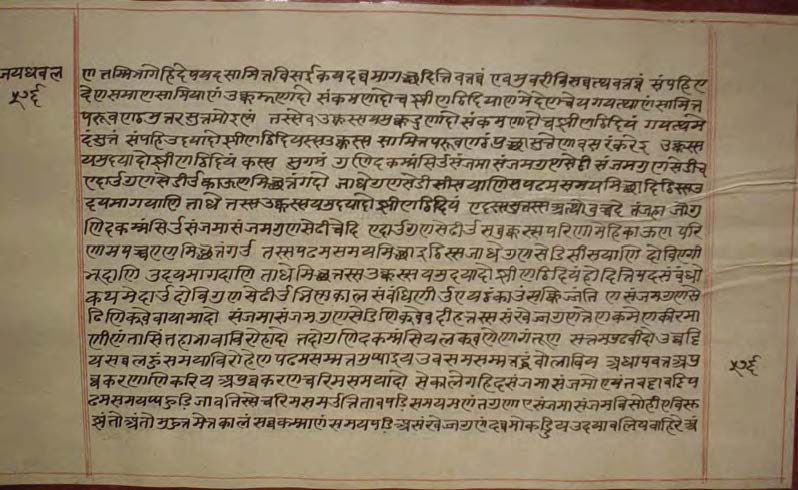 जयधवल
५७६
एत्तम्मि भागे हिदे पयदसामित्तविसईकयदव्वमागच्छदि त्ति वत्तव्वं एवमुवरी वि सव्वत्थ वत्तव्वं संपहि ए
देण समाणसामियाणं उक्कड्डणादो संकमणादो च झीणट्ठिदियाणमेदेण चेय गयत्थाणं सामित्त
परूवणट्ठमुत्तरसुत्तमोइणं तस्सेव उक्कस्सयमुक्कड्डणादो संकमणादो च झीणट्ठिदियं गयत्थमे
दं सुत्तं संपहि उदयादो झीणट्ठिदियस्स उक्कस्स सामित्तपरूवणट्ठं पुच्छासुत्तेणावसरं करेइ उक्कस्स
यमुदयादो झीणट्ठिदियं कस्स सुगमं गुणिदकम्मंसिउ संजमासंजमगुणसेढी संजमगुणसेढी च
एदाउ गुणसेढीउ काऊण मिच्छत्तं गदो जाधे गुणसेढीसीसयाणि पढमसमयमिच्छादिट्ठिस्स उ
दयमागयाणि ताधे तस्स उक्कस्सयमुदयादो झीणट्ठिदियं एदस्स सुत्तस्स अत्थो वुच्चदे तं जहा जो गु
णिदकम्मंसिउ संजमासंजमगुणसेढी चेदि एदाउ गुणसेढीउ सव्वुक्कस्सपरिणामेहि काऊण परि
णामपच्चएण मिच्छत्तं गउ तस्स पढमसमयमिच्छाइट्ठिस्स जाधे गुणसेढिसीसयाणि दो वि एगी
भूदाणि उदयमागदाणि ताधे मिच्छत्तस्स उक्कस्सयमुदयादो झीणट्ठिदियं होदि त्ति पदसंबंधो
कथमेदाउ दो वि गुणसेढीउ भिण्णकालसंबंधिणीउ एयट्ठं काउं सक्किज्जंति ण संजमगुणसे
ढिणिक्खेवायामादो संजमासंजमगुणसेढिणिक्खेवदीहत्तस्स संखेज्जगुणत्तेण कमेण कीरमा
णीणं तासिं तहाभावाविरोहादो तदो गुणिदकम्मंसियलक्खणेणागंतूण सत्तमपुढवीदो उव्वट्टि
य सव्वलहुं समयाविरोहेण पढमसम्मत्तमुप्पाइय उवसमसम्मत्तद्धं वोलाविय अधापवत्तअपु
व्वकरणाणि करिय अपुव्वकरणचरिमसमयादो से काले गहिदसंजमासंजमो एयंताणुवट्टिप
ढमसमयप्पहुडि जाव तिस्से चरिमसमउ त्ति ताव पडिसमयमणंतगुणाए संजमासंजमविसोहीए विसु
ज्झंतो अंतोमुहुत्तमेत्तकालं सव्वकम्माणं समयं पडि असंखेज्जगुणं दव्वमोकड्डिय उदयावलियबाहिरे अं
५७६